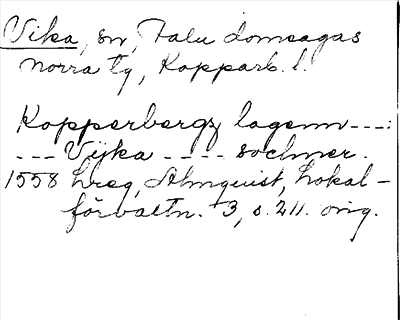 Vika, sn, Falu domsagas
norra tg, Kopparb. l.
Kopperbergz lagenn ---:
--- Vijka ---- sochner.
1558 Lreg, Almquist, Lokal-
förvaltn. 3, s. 211. orig.